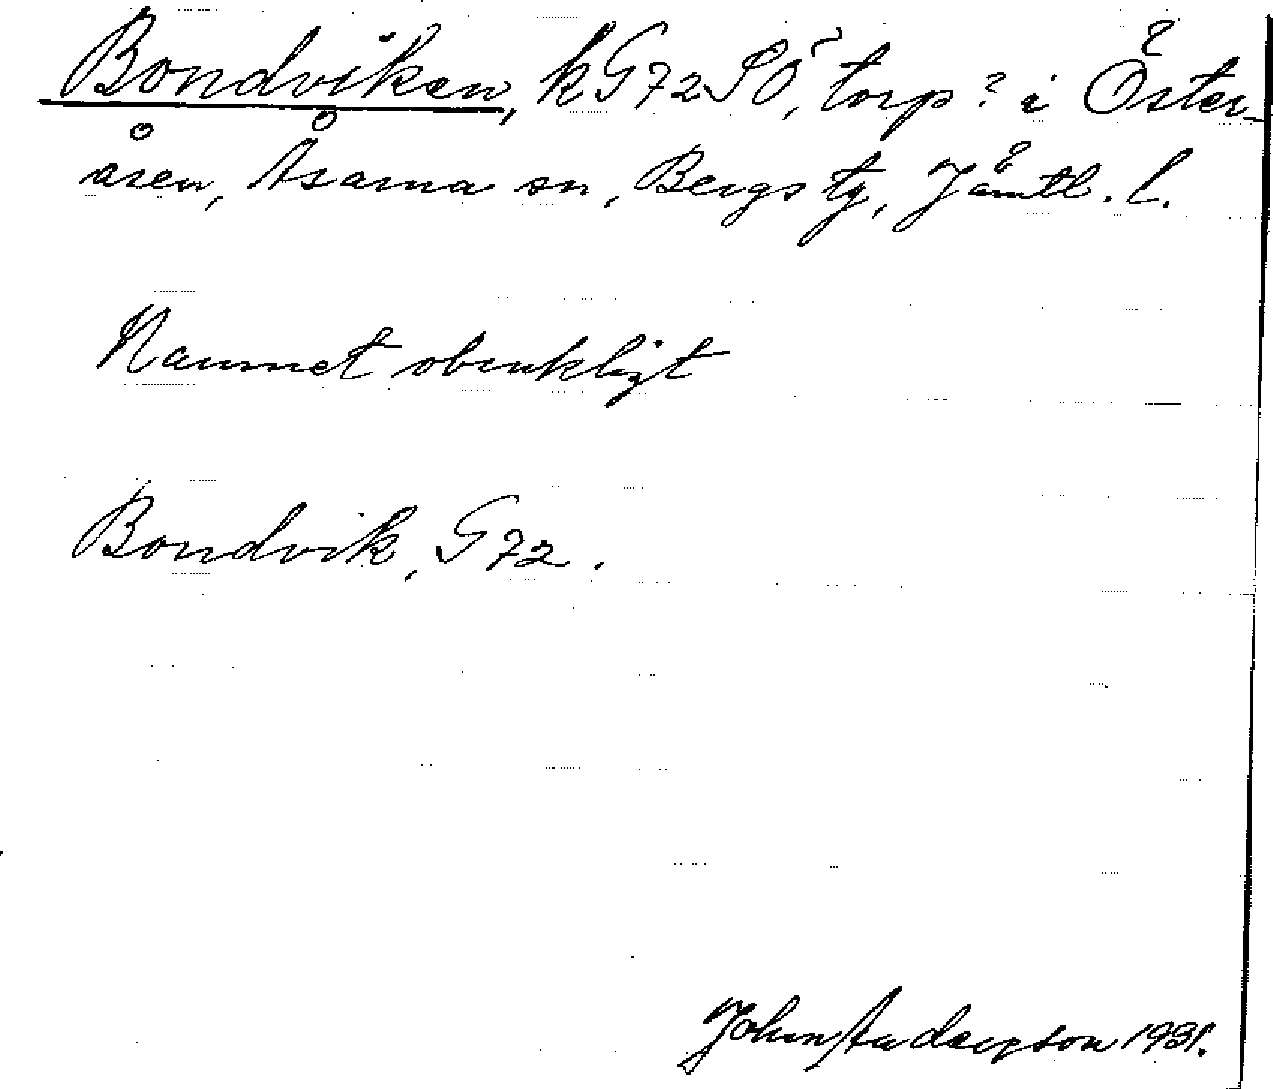 Bondviken, k G72SÖ, torp? i Öster-
åsen, Åsarna sn, Bergs tg, Jämtl. l.
Namnet obrukligt
Bondvik, G72.
John Andersson 1931.